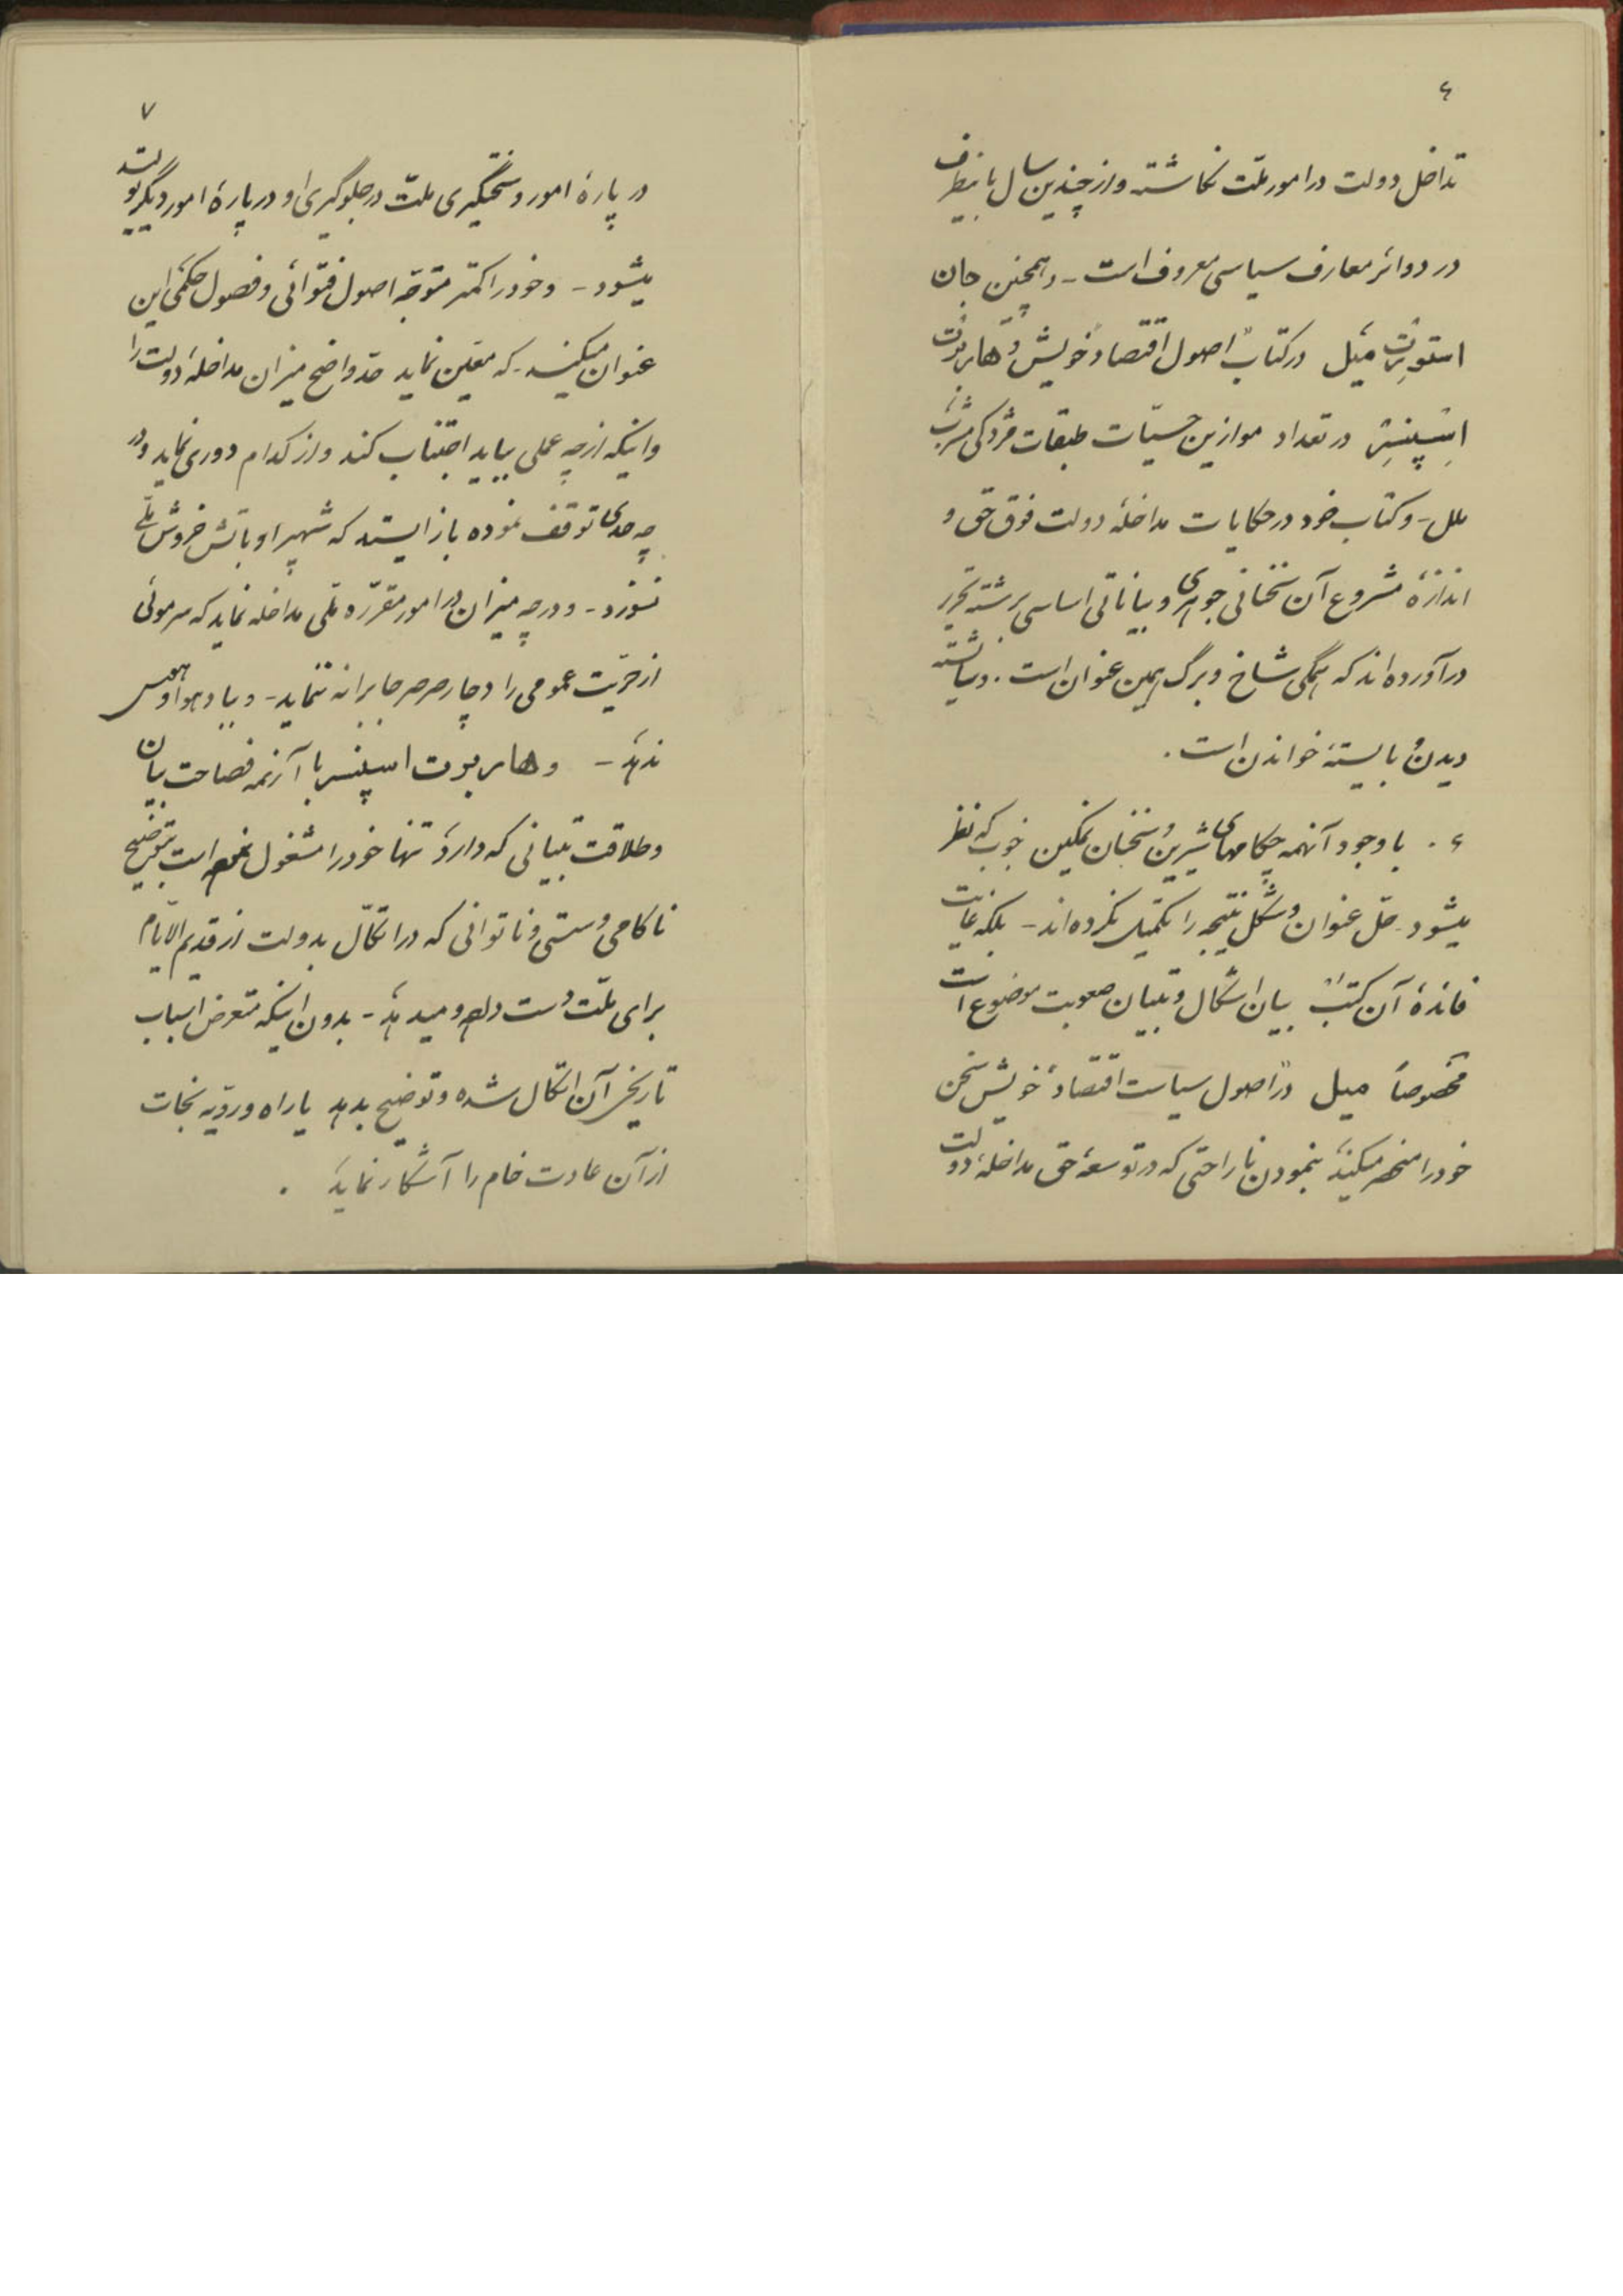 ٤
تداخل دولت در امور ملّت نگاشته و از چندین سال باینطرف
در دوائر معارف سیاسی معروف است - و همچنین جان
استورت میل در کتاب اصول اقتصاد خویش و هاربرت
اسپنسر در تعداد موازین حسیّات طبقات
ملل - و کتاب خود در حکایات مداخلهٔ دولت فوق حق و
اندازهٔ مشروع آن سخنانی جوهری و بیاناتی اساسی برشتهٔ تحریر
درآورده‌اند که همگی شاخ و برگ همین عنوان است. و شایستهٔ
دیدن و بایستهٔ خواندن است.
٤. با وجود آنهمه چکامهای شیرین و سخنان نمکین خوب که نظر
میشود - حلّ عنوان و شکل نتیجه را تکمیل نکرده‌اند - بلکه غایت
فائدهٔ آن کتب بیان اشکال و تبیان صعوبت موضوع است
مخصوصاً میل در اصول سیاست اقتصاد خویش سخن
خود را منحصر میکند بنمودن ناراحتی که در توسعهٔ حق مداخلهٔ دولت
٧
در پارهٔ امور و سختگیری ملّت در جلوگیری او در پارهٔ امور دیگر تولید
میشود - و خود را کمتر متوجّه اصول فتوائی و فصول حکمی این
عنوان میکند - که معیّن نماید حدّ واضح میزان مداخلهٔ دولت را
و اینکه از چه عملی بباید اجتناب کند و از کدام دوری نماید و در
چه حدی توقف نموده باز ایستد که شهپر او بآتش خروش ملّی
نسوزد - و در چه میزان در امور مقرّره ملّی مداخله نماید که سر موئی
از حرّیت عمومی را دچار صرصر جابرانه ننماید - و بباد هوا و هوس
ندهد - و هاربرت اسپنسر با آنهمه فصاحت بیان
و طلاقت تبیانی که دارد تنها خود را مشغول نموده است بتوضیح
ناکامی و سستی و ناتوانی که در اتکال بدولت از قدیم الایّام
برای ملّت دست داده و میدهد - بدون اینکه متعرض اسباب
تاریخی آن اتکال شده و توضیح بدهد یا راه و رویّه نجات
از آن عادت خام را آشکار نماید.